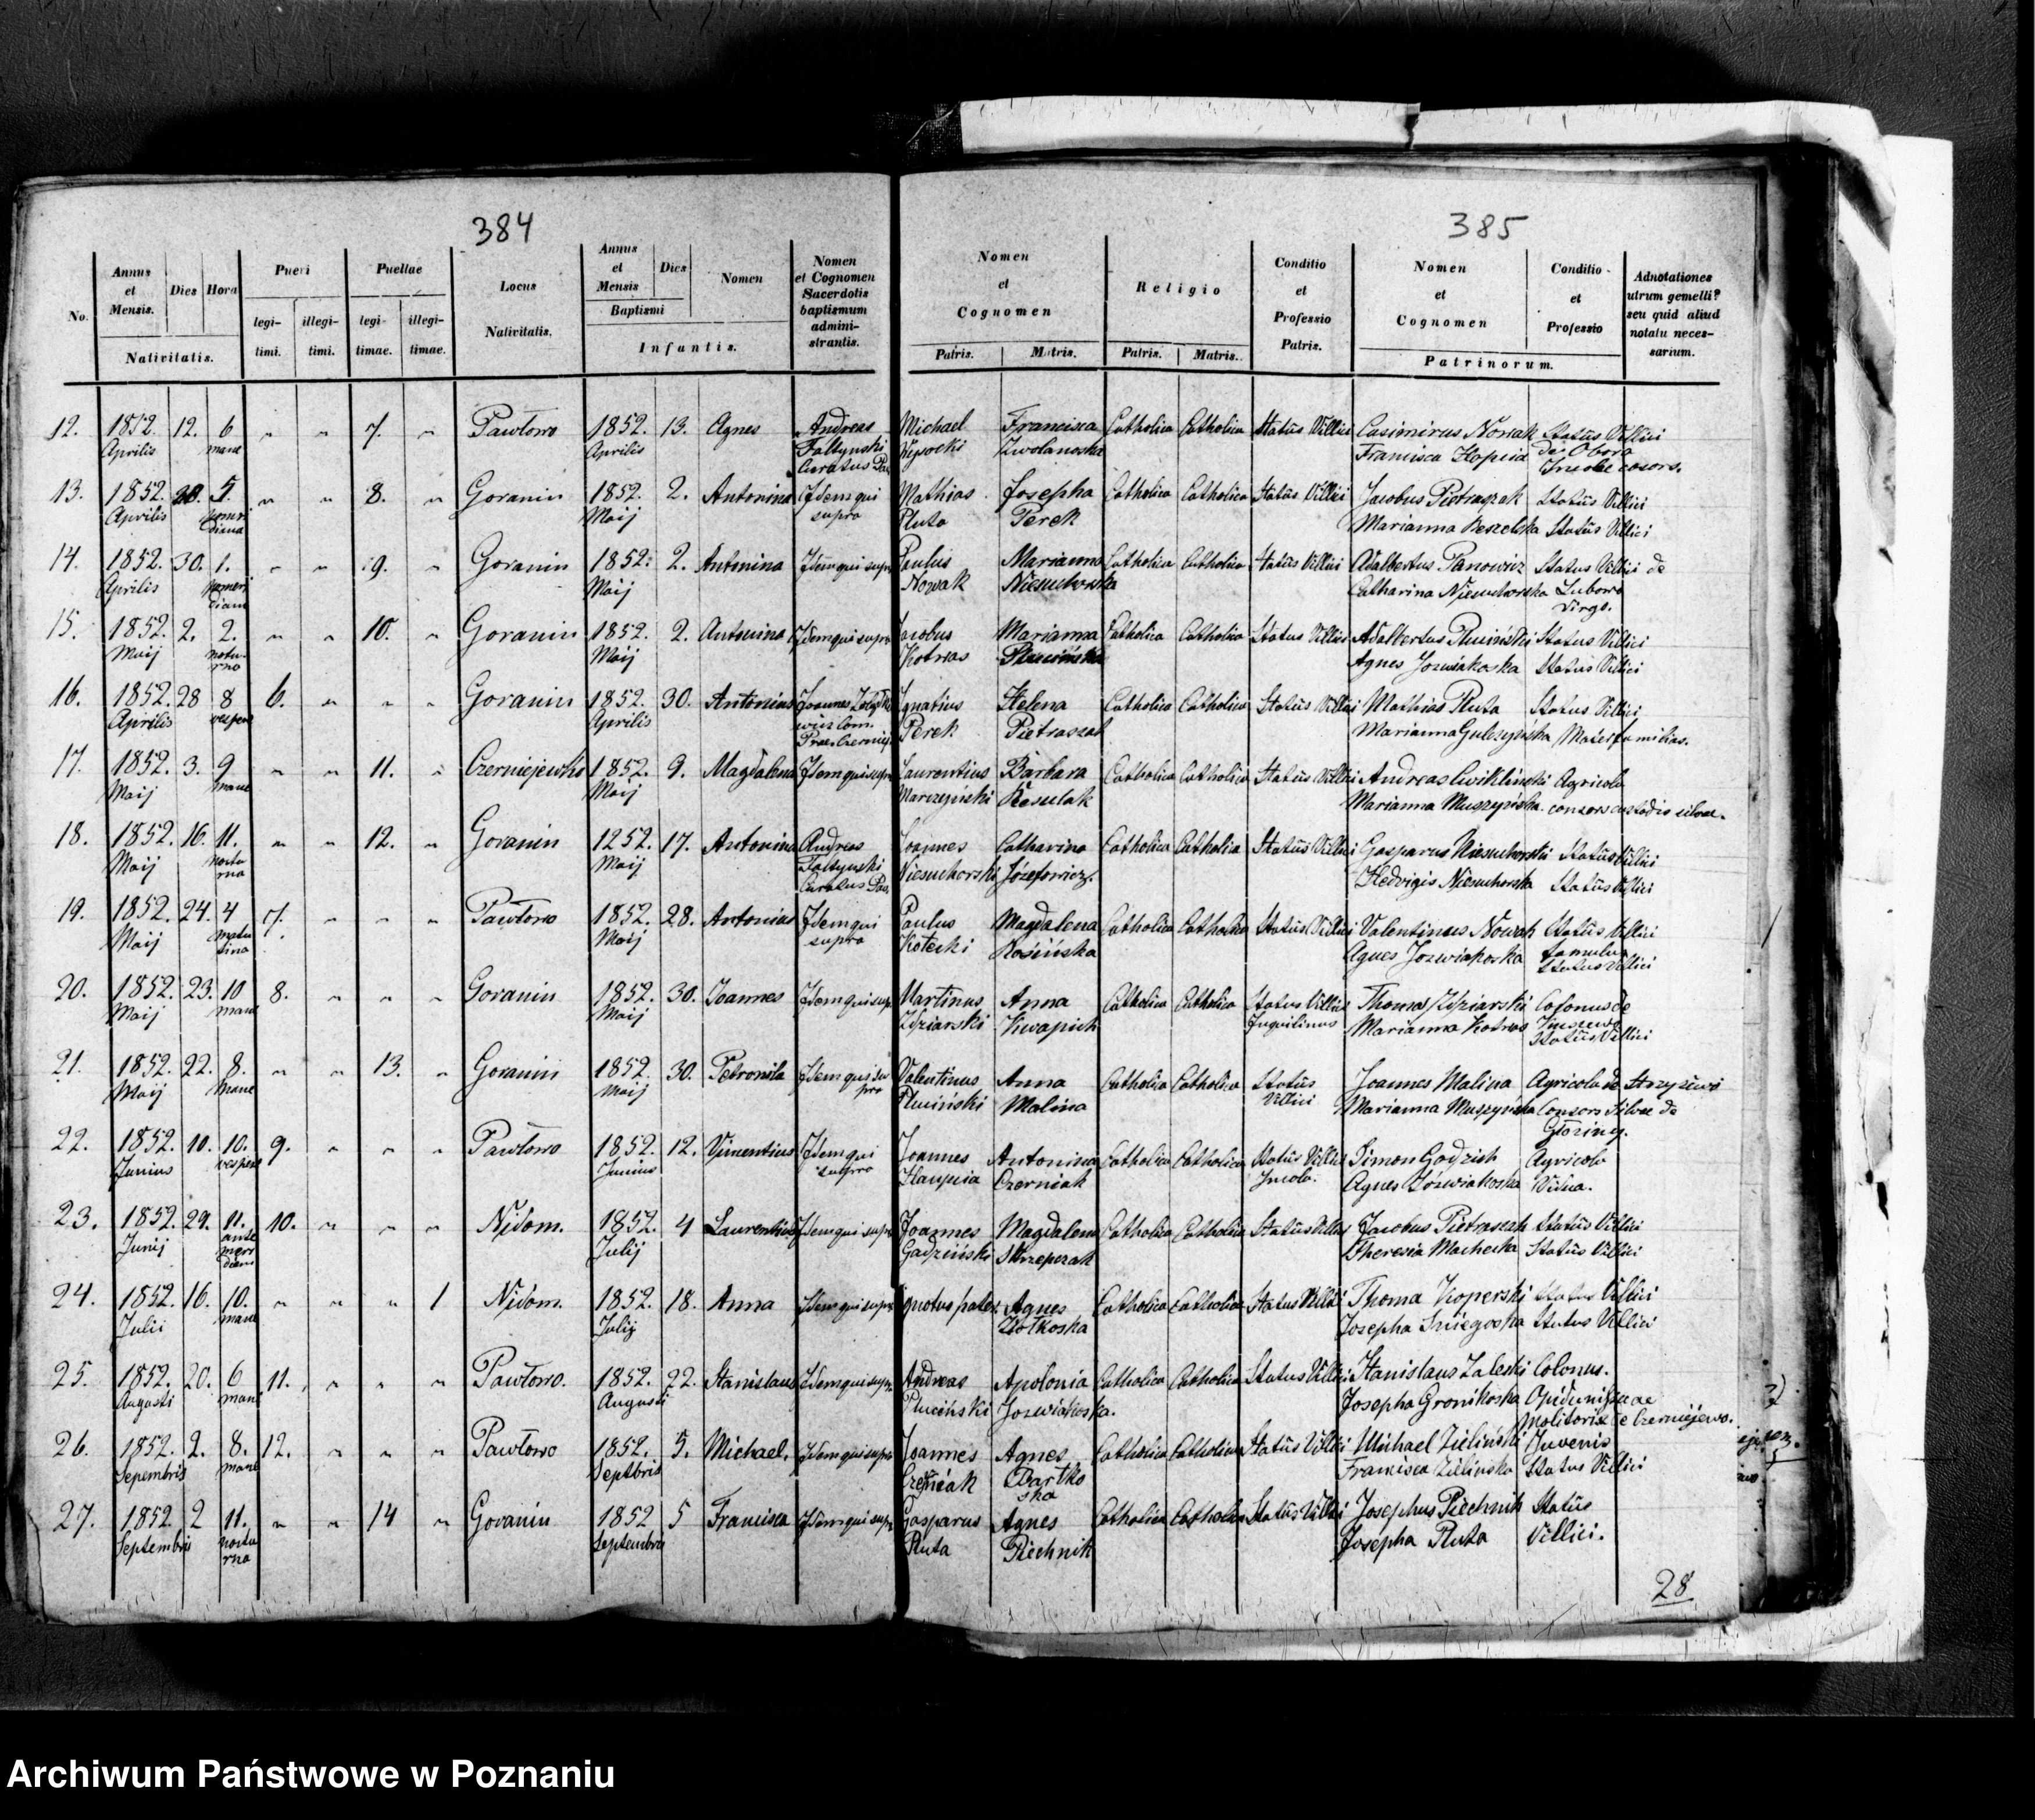 384
385
No.
Annus et Mensis.
Dies
Hora
Nativitatis.
Pueri
legitimi.
illegitimi.
Puellae
legitimae.
illegitimae.
Locus Nativitatis.
Annus et Mensis
Dies
Baptismi
Nomen
Infantis.
Nomen et Cognomen Sacerdotis baptismum administrantis.
Nomen et Cognomen
Patris.
Matris.
Religio
Patris.
Matris.
Conditio et Professio Patris.
Nomen et Cognomen
Conditio et Professio
Patrinorum.
Adnotationes utrum gemelli? seu quid aliud notatu necessarium.
12. 1852. 12. 6 " " 7. " Pawłowo 1852. 13. Agnes Andreas Michael Francisca Catholica Catholica Status Villici Casimirus Nowak Status Villici
Aprilis mane Aprilis Faltynski Wysocki Zwolanoska Francisca de Obora
Curatus
13. 1852. 5. " " 8. " Goranin 1852. 2. Antonina Idem qui Mathias Josepha Catholica Catholica Status Villici Jacobus Pietraszak Status Villici
Aprilis Maij supra Pluta Perek Marianna Status Villici
14. 1852. 30. 1. " " 9. " Goranin 1852. 2. Antonina Idem qui supra Paulus Marianna Catholica Catholica Status Villici Adalbertus Panowicz Status Villici de
Aprilis Maij Nowak Niesuchorska Catharina Niesuchorska Lubowo
Virgo.
15. 1852. 2. 2. " " 10. " Goranin 1852. 2. Antonina Idem qui supra Jacobus Marianna Catholica Catholica Status Villici Adalbertus Pluciński Status Villici
Maij noctu- Maij Kotwas Plucińska Agnes Jozwiakoska Status Villici
rna
16. 1852. 28 8 6. " " " Goranin 1852. 30. Antonius Joannes Ignatius Helena Catholica Catholica Status Villici Mathias Pluta Status Villici
Aprilis vespere Aprilis Perek Pietraszak Marianna Gulczyńska Materfamilias.
17. 1852. 3. 9 " " 11. " Czerniejewko 1852. 9. Magdalena Idem qui supra Laurentius Barbara Catholica Catholica Status Villici Andreas Cwikliński Agricola
Maij mane Maij Marczyński Marianna Muszyńska consors custodis silvae.
18. 1852. 16. 11. " " 12. " Goranin 1252. 17. Antonina Andreas Joannes Catharina Catholica Catholica Status Villici Gasparus Niesuchorski Status Villici
Maij noctu Maij Faltynski Niesuchorski Józefowicz. Hedvigis Niesuchorska Status Villici
rna Curatus
19. 1852. 24. 4 7. " " " Pawłowo 1852. 28. Antonius Idem qui Paulus Magdalena Catholica Catholica Status Villici Valentinus Nowak Status Villici
Maij matu Maij supra Kotecki Kosińska Agnes Jozwiakoska famula
tina Status Villici
20. 1852. 23. 10 8. " " " Goranin 1852. 30. Joannes Idem qui supra Martinus Anna Catholica Catholica Status Villici Thomas Zdziarski Colonus de
Maij mane Maij Zdziarski Kwapich Inquilinus Marianna Kotwas
Status Villici
21. 1852. 22. 8. " " 13. " Goranin 1852 30. Petronila Idem qui su Valentinus Anna Catholica Catholica Status Joannes Malina Agricola de Strzyżewo
Maij Mane Maij pra Pluciński Malina Villici Marianna Muszyńska Consors Silvae de
22. 1852. 10. 10. 9. " " " Pawłowo 1852. 12. Vincentius Idem qui Joannes Antonina Catholica Catholica Status Villici Simon Godzich Agricola
Junius vespere Junius supra Czerniak Incola. Agnes Józwiakoska Vidua.
23. 1852. 29. 11. 10. " " " Nidom. 1852. 4 Laurentius Idem qui supra Joannes Magdalena Catholica Catholica Status Villici Jacobus Pietraszak Status Villici
Junij ante Julij Gadziński Skrzepczak Theresia Machecka Status Villici
meri
diana
24. 1852. 16. 10. " " " 1 Nidom. 1852. 18. Anna Idem qui supra Ignotus pater Agnes Catholica Catholica Status Villici Thoma Koperski Status Villici
Julii mane Julij Żołkoska Josepha Sniegoska Status Villici
25. 1852. 20. 6 11. " " " Pawłowo. 1852. 22. Stanislaus Idem qui supra Andreas Apolonia Catholica Catholica Status Villici Stanislaus Zaleski Colonus.
Augusti mane Augusti Pluciński Jozwiakoska. Josepha Gronikoska
de Czerniejewo.
26. 1852. 2. 8. 12. " " " Pawłowo 1852. 5. Michael. Idem qui supra Joannes Agnes Catholica Catholica Status Villici Michael Zieliński Juvenis
Sepembris mane Septbris Czerniak Bartko Francisca Zielinska Status Villici
ska
27. 1852. 2 11. " " 14 " Goranin 1852 5 Francisca Idem qui supra Gasparus Agnes Catholica Catholica Status Villici Josephus Piechnik Status
Septembris noctu Septembris Pluta Piechnik Josepha Pluta Villici.
rna
28
Archiwum Państwowe w Poznaniu